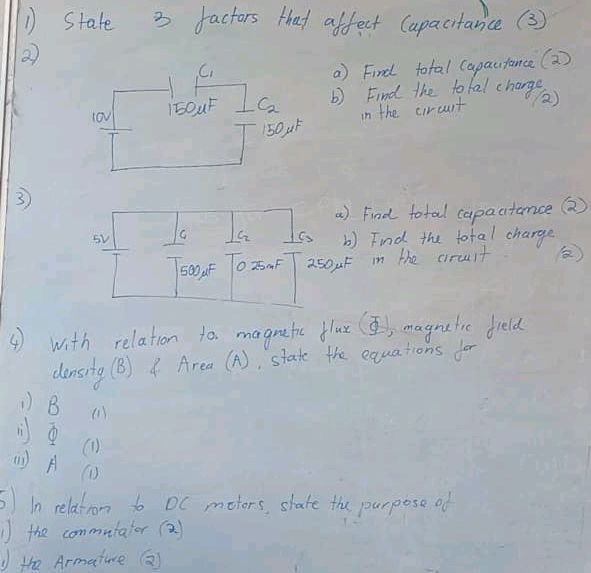 1) State 3 factors that affect Capacitance (3)
2)
C1
150μF
10V
C2
150μF
a) Find total capacitance (2)
b) Find the total charge
in the circuit (2)
3)
5V
C1
500μF
C2
0.25mF
C3
250μF
a) Find total capacitance (2)
b) Find the total charge
in the circuit. (2)
4) With relation to magnetic flux (Φ), magnetic field
density (B) & Area (A), state the equations for
i) B (1)
ii) Φ (1)
iii) A (1)
5) In relation to DC motors, state the purpose of
i) the commutator (2)
) the Armature (2)